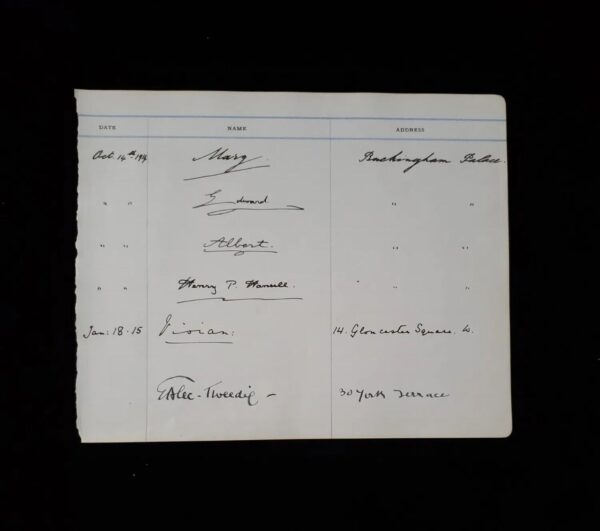 DATE NAME ADDRESS
Oct. 14th 1914 Mary. Buckingham Palace.
" " Edward " "
" " Albert. " "
" " Henry P. Hansell. " "
Jan: 18. 15 Vivian: 14. Gloucester Square. W.
E Alec-Tweedie - 30 York Terrace